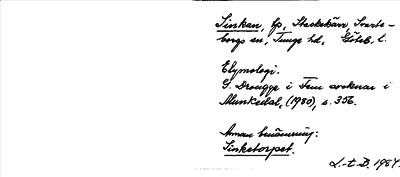 Sinkan, lp, Stackekärr, Svarte-
borgs sn, Tunge hd, Göteb. l.
Etymologi.
G. Drougge i Fem socknar i
Munkedal, (1980), s. 356.
Annan benämning:
Sinketorpet.
L.-t. D. 1984.